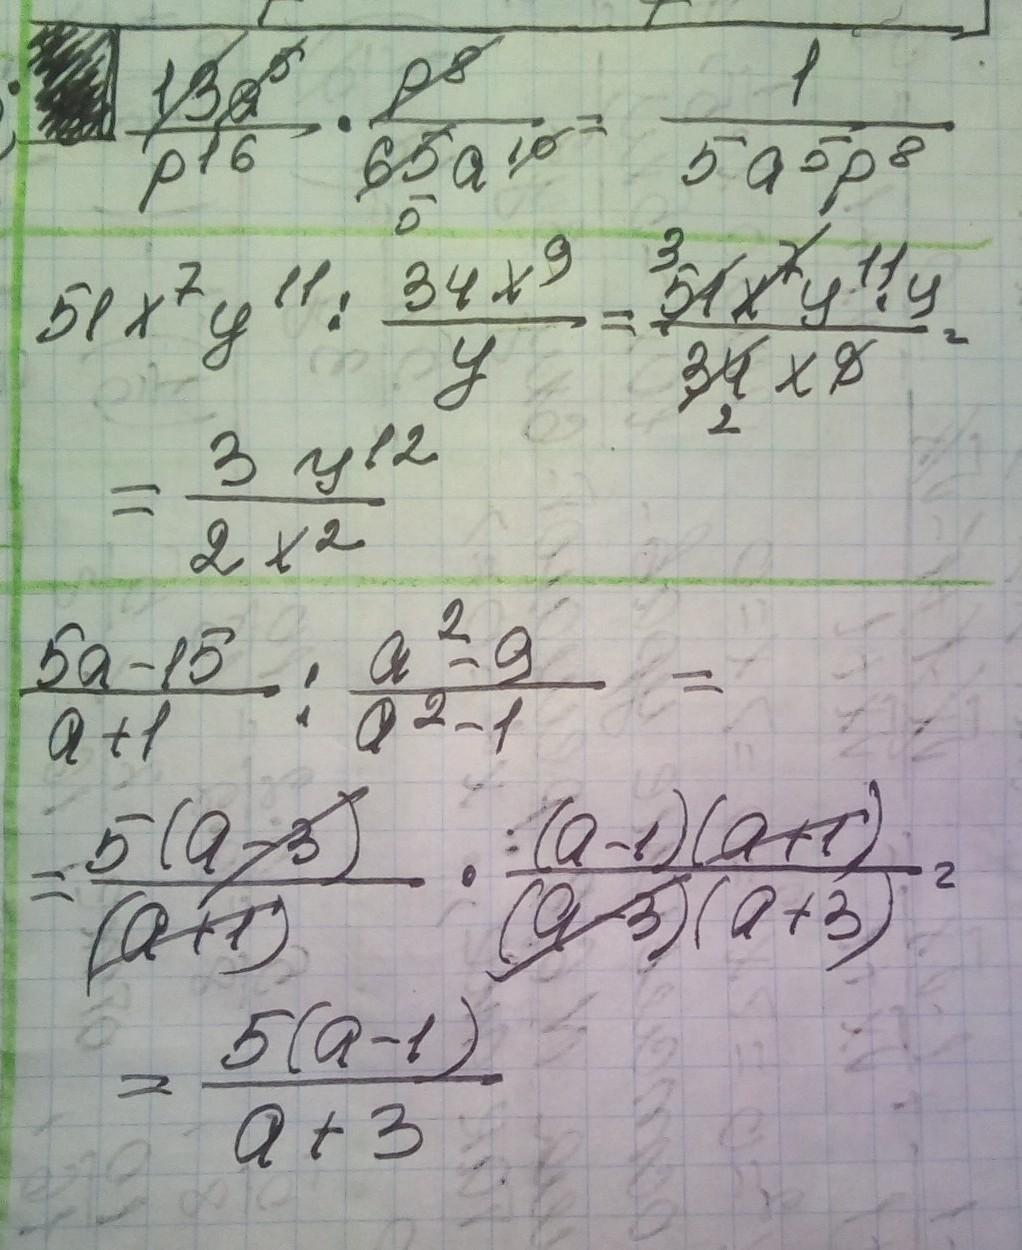 13a⁵/p¹⁶ · p⁸/65a¹⁰ = 1/5a⁵p⁸
5
51x⁷y¹¹ : 34x⁹/y = 51x⁷y¹¹·y/34x⁹ =
3
2
= 3y¹²/2x²
5a-15/a+1 : a²-9/a²-1 =
= 5(a-3)/(a+1) · (a-1)(a+1)/(a-3)(a+3) =
= 5(a-1)/a+3